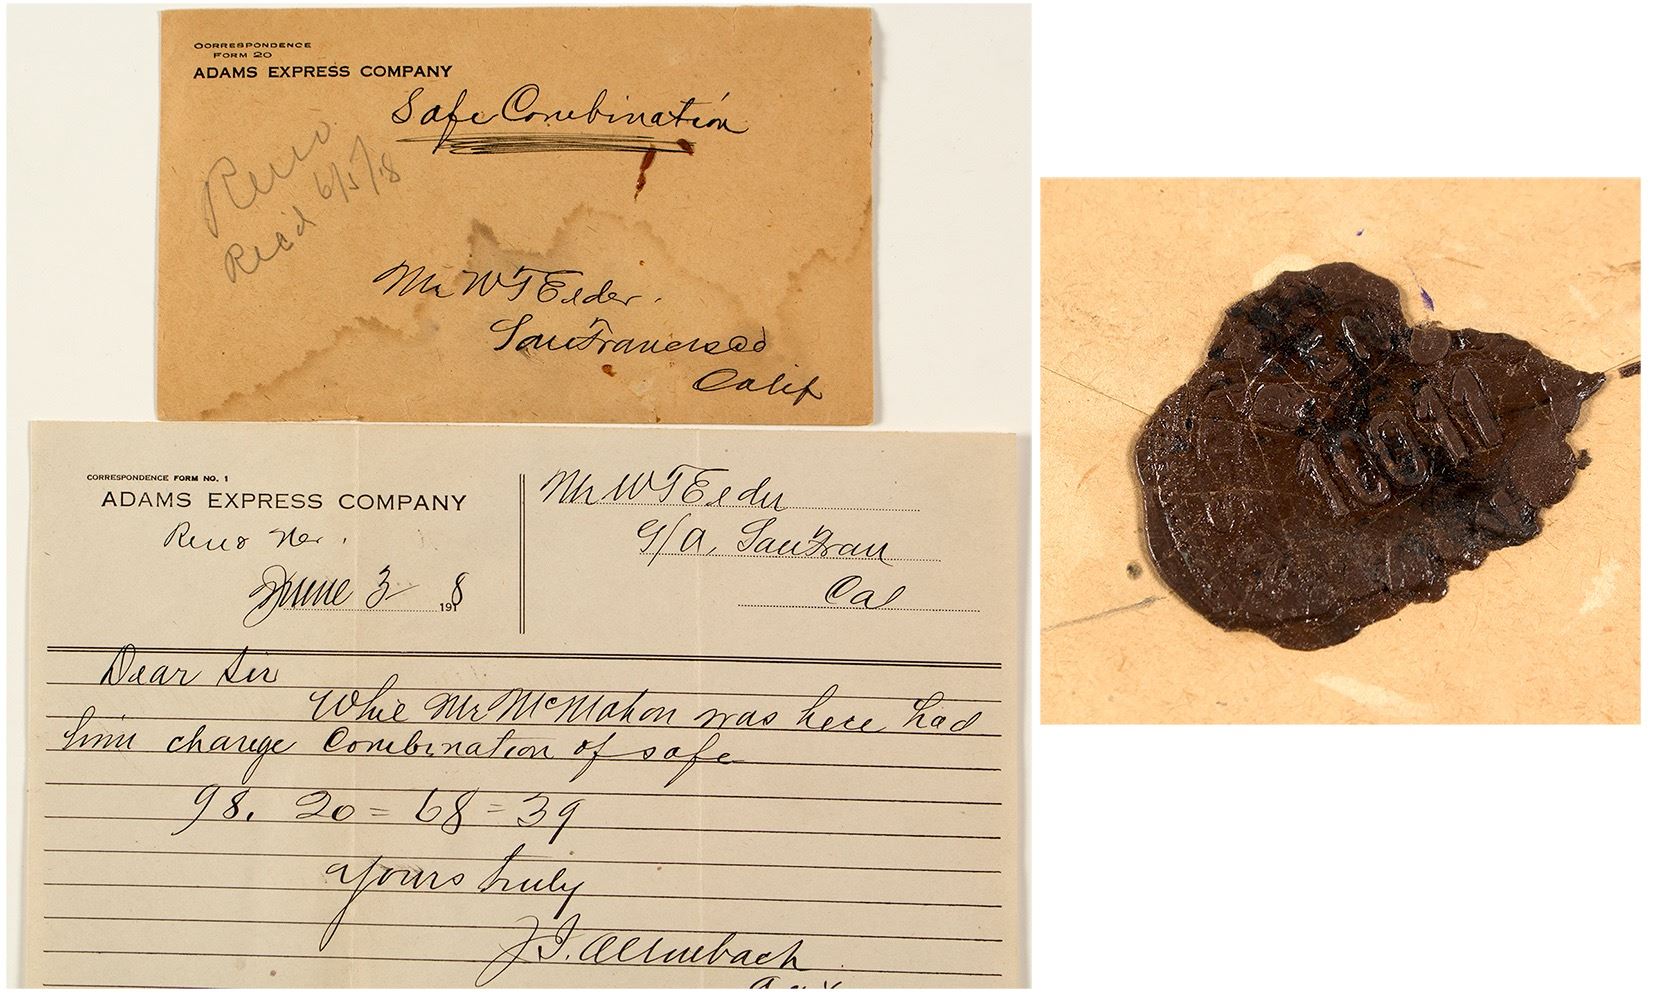 CORRESPONDENCE
FORM 20
ADAMS EXPRESS COMPANY
Safe Combination
Reno
Rec'd 6/5/18
Mr W T Elder.
San Francisco
Calif
CORRESPONDENCE FORM NO. 1
ADAMS EXPRESS COMPANY
Reno Nev.
June 3 1918
Mr W T Elder
G/A, San Fran
Cal
Dear Sir
While Mr McMahon was here had
him change Combination of safe
98. 20 = 68 = 39
Yours truly
10011